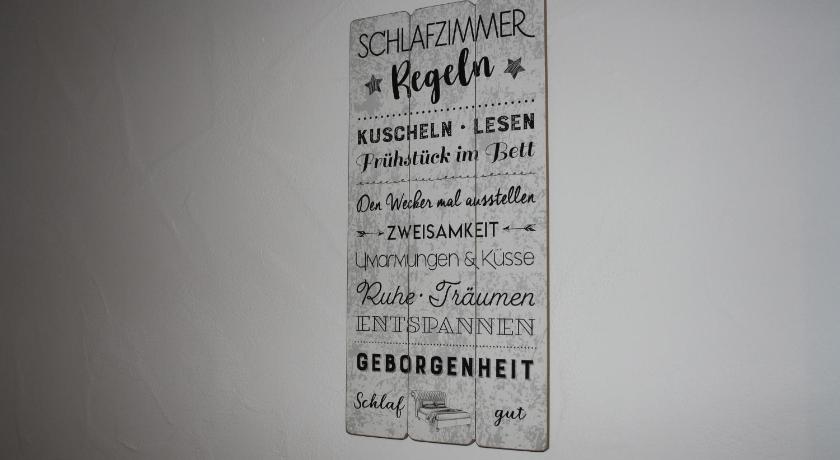 SCHLAFZIMMER
Regeln
KUSCHELN · LESEN
Frühstück im Bett
Den Wecker mal ausstellen
ZWEISAMKEIT
UMARMUNGEN & KÜSSE
Ruhe · Träumen
ENTSPANNEN
GEBORGENHEIT
Schlaf gut